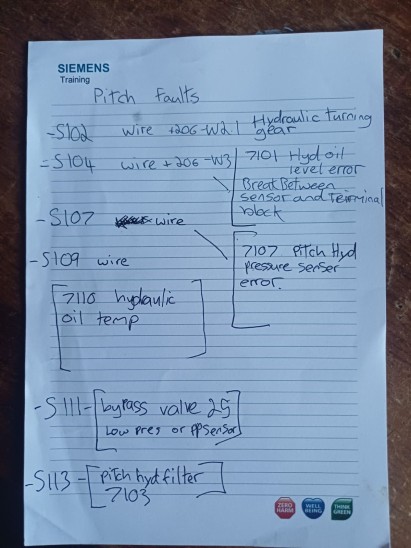 SIEMENS
Training
Pitch Faults
-S102 wire +206-W2.1 Hydraulic turning gear
-S104 wire +206-W3
7101 Hyd oil
level error
Break Between
sensor and Teirminal
block
-S107 wire
-S109 wire
7107 Pitch Hyd
pressure senser
error.
7110 hydraulic
oil temp
-S111- bypass valve 25
Low pres or PPsensor
-S113- pitch hyd filter
7103
ZERO HARM
WELL BEING
THINK GREEN